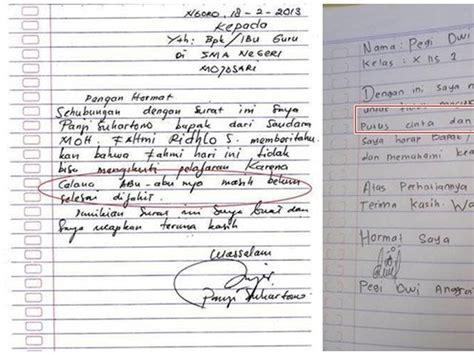 NGORO, 18-2-2013
Kepada
Yth: Bpk/Ibu Guru
Di SMA NEGERI
MOJOSARI
Dengan Hormat
Sehubungan dengan surat ini saya
Panji Suhartono bapak dari saudara
MOH. FAHMI RIDHLO S. memberitahu
kan bahwa Fahmi hari ini tidak
bisa mengikuti pelajaran karena
Celana Abu-abu nya masih belum
selesai dijahit.
Demikian surat ini saya buat dan
saya ucapkan terima kasih
Wassalam
Panji Suhartono
Nama: Pegi Dwi
Kelas: X IIS 2
Dengan ini saya
Putus cinta dan
Saya harap Bapak
dan memahami
Atas Perhatiannya
Terima Kasih.
Hormat Saya
Pegi Dwi Anggra